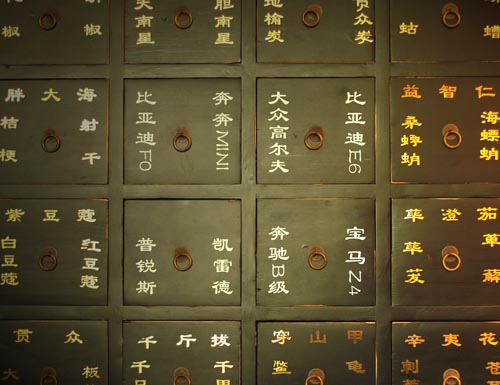 椒
椒
南星
胆南星
地榆炭
贯众炭
蛄
螬
胖大海
桔梗
射干
比亚迪F0
奔奔MINI
大众高尔夫
比亚迪E6
益智仁
桑螵蛸
海螵蛸
紫豆蔻
白豆蔻
红豆蔻
普锐斯
凯雷德
奔驰B级
宝马Z4
荜澄茄
荜茇
草
贯众
大
板
千斤拔
千
千
穿山甲
鳖
龟
辛夷花